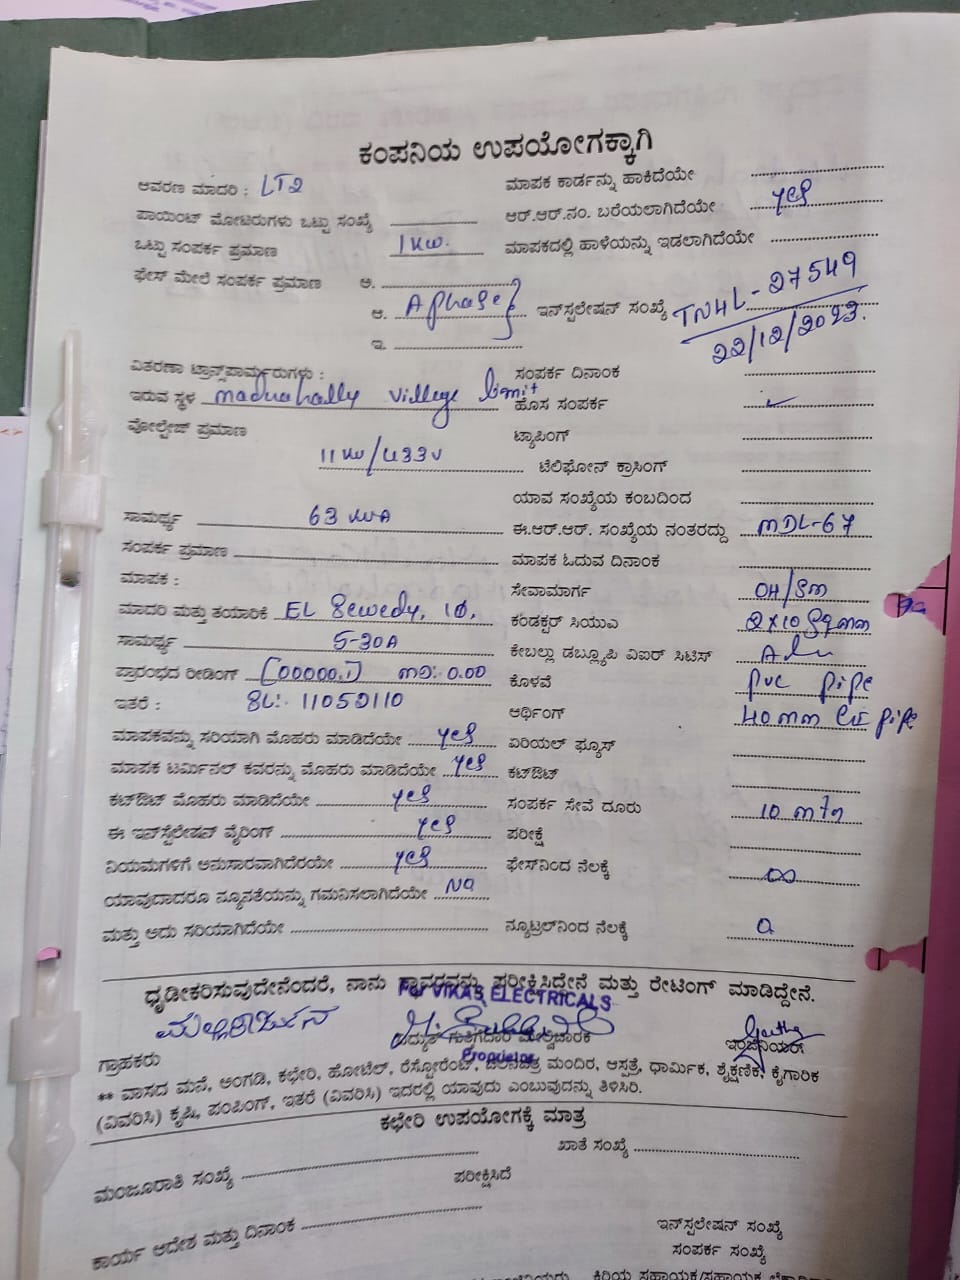 ಕಂಪನಿಯ ಉಪಯೋಗಕ್ಕಾಗಿ
ಆವರಣ ಮಾದರಿ : LT2
ಮಾಪಕ ಕಾರ್ಡನ್ನು ಹಾಕಿದೆಯೇ
ಪಾಯಿಂಟ್ ಮೋಟರುಗಳು ಒಟ್ಟು ಸಂಖ್ಯೆ
ಆರ್.ಆರ್.ನಂ. ಬರೆಯಲಾಗಿದೆಯೇ yes
ಒಟ್ಟು ಸಂಪರ್ಕ ಪ್ರಮಾಣ 1 KW.
ಮಾಪಕದಲ್ಲಿ ಹಾಳೆಯನ್ನು ಇಡಲಾಗಿದೆಯೇ
ಫೇಸ್ ಮೇಲೆ ಸಂಪರ್ಕ ಪ್ರಮಾಣ ಅ.
ಆ. A phase
ಇನ್‌ಸ್ಪಲೇಷನ್ ಸಂಖ್ಯೆ TN4L-27549
22/12/2023.
ಇ.
ವಿತರಣಾ ಟ್ರಾನ್ಸ್‌ಪಾರ್ಮರುಗಳು :
ಸಂಪರ್ಕ ದಿನಾಂಕ
ಇರುವ ಸ್ಥಳ maduahally village limit
ಹೊಸ ಸಂಪರ್ಕ ✓
ವೋಲ್ಟೇಜ್ ಪ್ರಮಾಣ
ಟ್ಯಾಪಿಂಗ್
11 KV/433V
ಟೆಲಿಫೋನ್ ಕ್ರಾಸಿಂಗ್
ಯಾವ ಸಂಖ್ಯೆಯ ಕಂಬದಿಂದ
ಸಾಮರ್ಥ್ಯ 63 KVA
ಈ.ಆರ್.ಆರ್. ಸಂಖ್ಯೆಯ ನಂತರದ್ದು MDL-67
ಸಂಪರ್ಕ ಪ್ರಮಾಣ
ಮಾಪಕ ಓದುವ ದಿನಾಂಕ
ಮಾಪಕ :
ಸೇವಾಮಾರ್ಗ OH/SM
ಮಾದರಿ ಮತ್ತು ತಯಾರಿಕೆ EL Sewedy, 1Ø,
ಕಂಡಕ್ಟರ್ ಸಿಯುವಿ 2x10 sqmm
ಸಾಮರ್ಥ್ಯ 5-30A
ಕೇಬಲ್ಲು ಡಬ್ಲ್ಯೂಪಿ ವಿಐರ್ ಸಿಟಿಸ್ Alu
ಪ್ರಾರಂಭದ ರೀಡಿಂಗ್ [00000.1) MD: 0.00
ಕೊಳವೆ PVC pipe
ಇತರೆ : SL: 11052110
ಆರ್ಥಿಂಗ್ 40 mm GI pipe
ಮಾಪಕವನ್ನು ಸರಿಯಾಗಿ ಮೊಹರು ಮಾಡಿದೆಯೇ yes
ಏರಿಯಲ್ ಫ್ಯೂಸ್
ಮಾಪಕ ಟರ್ಮಿನಲ್ ಕವರನ್ನು ಮೊಹರು ಮಾಡಿದೆಯೇ yes
ಕಟ್‌ಔಟ್
ಕಟ್‌ಔಟ್ ಮೊಹರು ಮಾಡಿದೆಯೇ yes
ಸಂಪರ್ಕ ಸೇವೆ ದೂರು 10 mtr
ಈ ಇನ್‌ಸ್ಟಲೇಷನ್ ವೈರಿಂಗ್ yes
ಪರೀಕ್ಷೆ
ನಿಯಮಗಳಿಗೆ ಅನುಸಾರವಾಗಿದೆರಯೇ yes
ಫೇಸ್‌ನಿಂದ ನೆಲಕ್ಕೆ ∞
ಯಾವುದಾದರೂ ನ್ಯೂನತೆಯನ್ನು ಗಮನಿಸಲಾಗಿದೆಯೇ No
ಮತ್ತು ಅದು ಸರಿಯಾಗಿದೆಯೇ
ನ್ಯೂಟ್ರಲ್‌ನಿಂದ ನೆಲಕ್ಕೆ 0
ಧೃಡೀಕರಿಸುವುದೇನೆಂದರೆ, ನಾನು ಸ್ಥಾವರವನ್ನು ಪರೀಕ್ಷಿಸಿದ್ದೇನೆ ಮತ್ತು ರೇಟಿಂಗ್ ಮಾಡಿದ್ದೇನೆ.
For VIKAS ELECTRICALS
ಮಲ್ಲಿಕಾರ್ಜುನ
ವಿದ್ಯುತ್ ಗುತ್ತಿಗೆದಾರ ಮೇಲ್ವಿಚಾರಕ
Proprietor
ಇಂಜಿನಿಯರ್
ಗ್ರಾಹಕರು
** ವಾಸದ ಮನೆ, ಅಂಗಡಿ, ಕಛೇರಿ, ಹೋಟೆಲ್, ರೆಸ್ಟೋರೆಂಟ್, ಚಲನಚಿತ್ರ ಮಂದಿರ, ಆಸ್ಪತ್ರೆ, ಧಾರ್ಮಿಕ, ಶೈಕ್ಷಣಿಕ, ಕೈಗಾರಿಕ
(ವಿವರಿಸಿ) ಕೃಷಿ, ಪಂಪಿಂಗ್, ಇತರೆ (ವಿವರಿಸಿ) ಇದರಲ್ಲಿ ಯಾವುದು ಎಂಬುವುದನ್ನು ತಿಳಿಸಿರಿ.
ಕಛೇರಿ ಉಪಯೋಗಕ್ಕೆ ಮಾತ್ರ
ಖಾತೆ ಸಂಖ್ಯೆ
ಮಂಜೂರಾತಿ ಸಂಖ್ಯೆ
ಪರೀಕ್ಷಿಸಿದೆ
ಕಾರ್ಯ ಆದೇಶ ಮತ್ತು ದಿನಾಂಕ
ಇನ್‌ಸ್ಪಲೇಷನ್ ಸಂಖ್ಯೆ
ಸಂಪರ್ಕ ಸಂಖ್ಯೆ